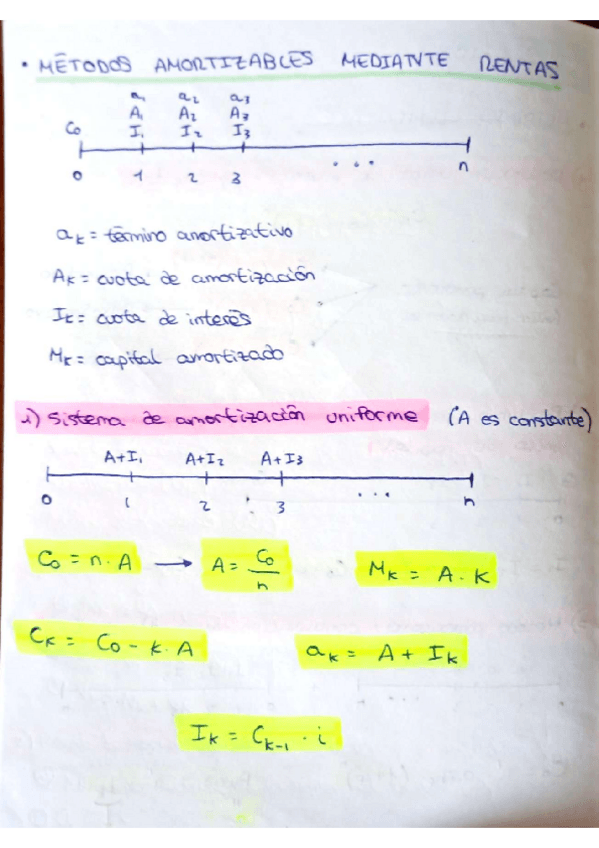 • MÉTODOS AMORTIZABLES MEDIANTE RENTAS
a₁ a₂ a₃
A₁ A₂ A₃
C₀ I₁ I₂ I₃
0 1 2 3 ... n
aₖ = término amortizativo
Aₖ = cuota de amortización
Iₖ = cuota de interés
Mₖ = capital amortizado
1) Sistema de amortización uniforme (A es constante)
A+I₁ A+I₂ A+I₃
0 1 2 3 ... n
C₀ = n·A → A = C₀/n Mₖ = A·K
Cₖ = C₀ - k·A aₖ = A + Iₖ
Iₖ = Cₖ₋₁ · i